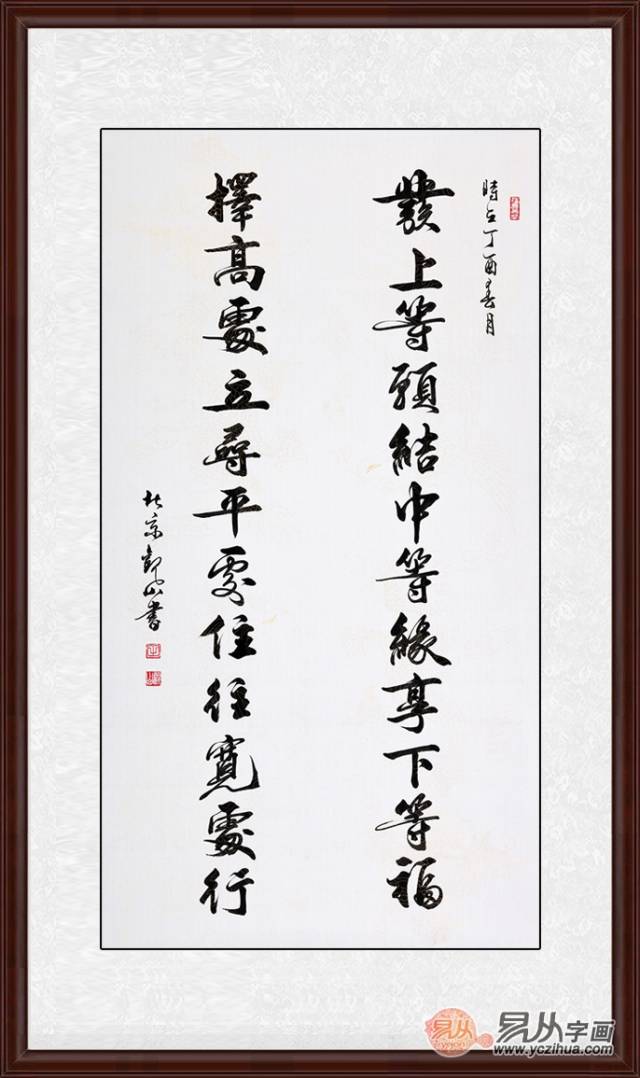 時在丁酉春月
發上等願結中等緣享下等福
擇高處立尋平處住往寬處行
北京山書
易从字画
www.yczihua.com